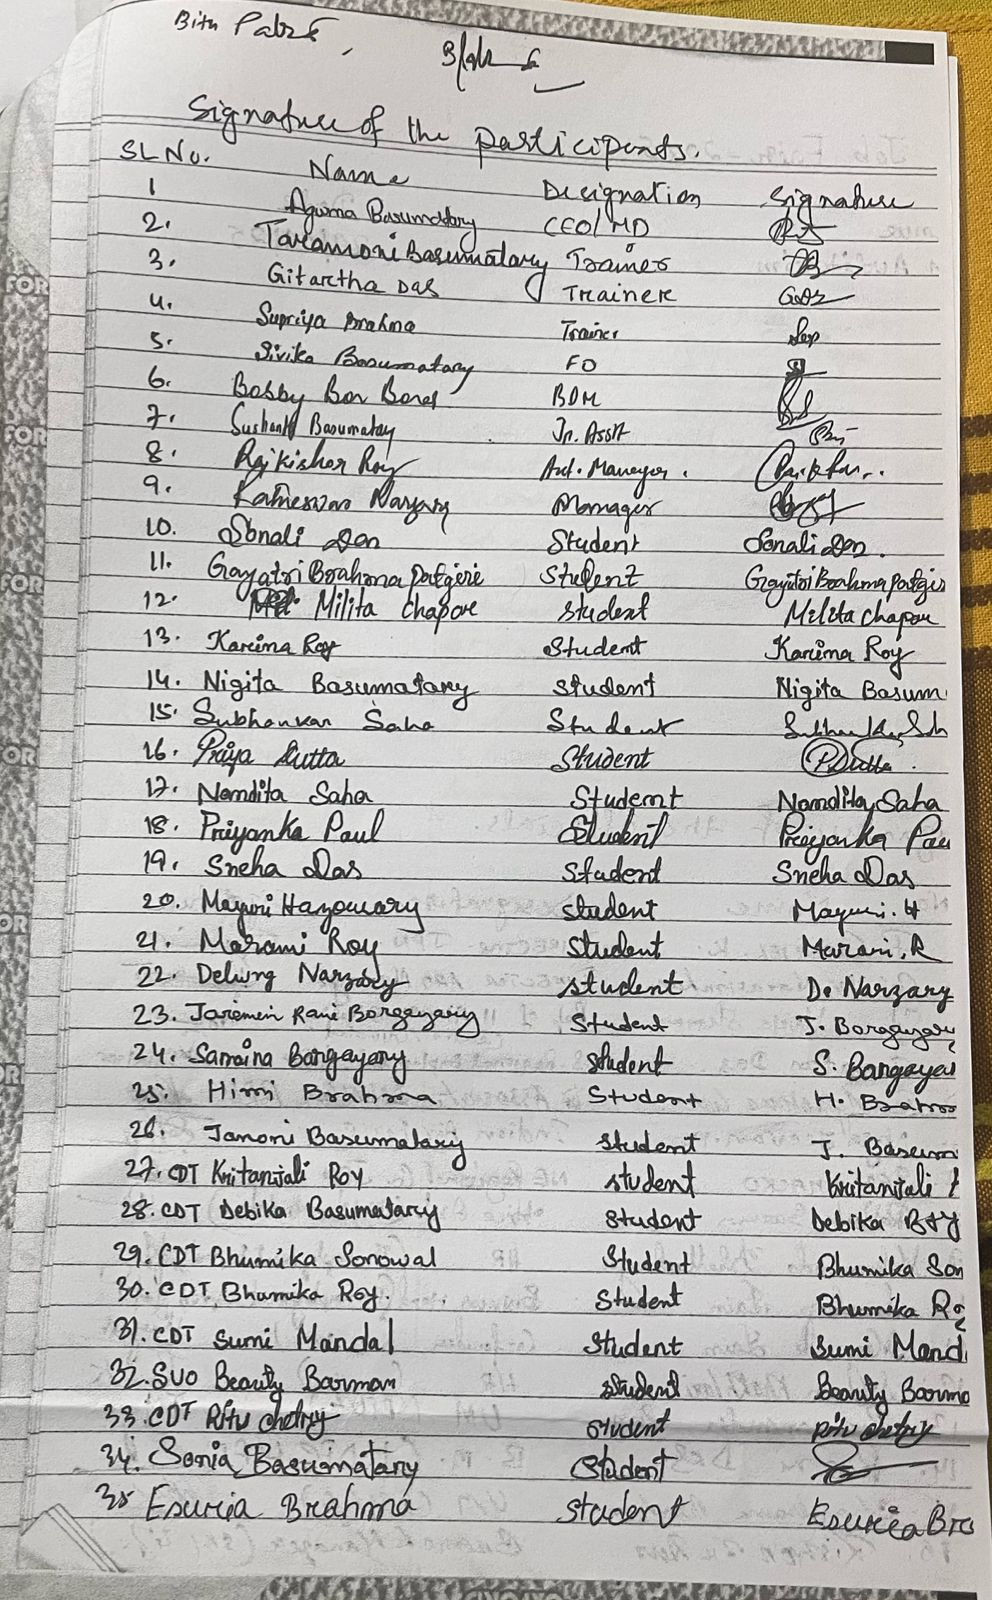 Bitu
Signature of the participants.
SL No. Name Designation Signature
1 Aguma Basumatary CEO/MD
2. Taramoni Basumatary Trainer
3. Gitartha Das Trainer
4. Supriya Brahma Trainer Sup
5. Sivika Basumatary FO
6. Bobby Bor Boro BDM
7. Sushant Basumatary Jr. Asstt
8. Rajkishor Roy Manager
9. Kameswar Narzary Manager
10. Sonali Den Student Sonali Den.
11. Gayatri Brahma Patgiri Student Gayatri Brahma Patgir
12. Milita Chapor student Milita Chapor
13. Karima Roy Student Karima Roy
14. Nigita Basumatary student Nigita Basum
15. Subhankar Saha Student
16. Priya Dutta Student P.Dutta
17. Nandita Saha Student Nandita Saha
18. Priyanka Paul Student Priyanka Pau
19. Sneha Das Student Sneha Das
20. Mayuri Hazowary student Mayuri. H
21. Marami Roy Student Marami. R
22. Delung Narzary student D. Narzary
23. Jaremein Rani Borgayary Student J. Borgayary
24. Samaina Bargayary student S. Bargayar
25. Himi Brahma Student H. Brahm
26. Janoni Basumatary student J. Basum
27. CDT Kritanjali Roy student Kritanjali
28. CDT Debika Basumatary student Debika BTY
29. CDT Bhumika Sonowal Student Bhumika Son
30. CDT Bhumika Roy. Student Bhumika Ro
31. CDT Sumi Mandal student Sumi Mand
32. SUO Beauty Barman student Beauty Barma
33. CDT Ritu chetry student Ritu chetry
34. Sonia Basumatary Student
35 Esuria Brahma student Esuria Bra